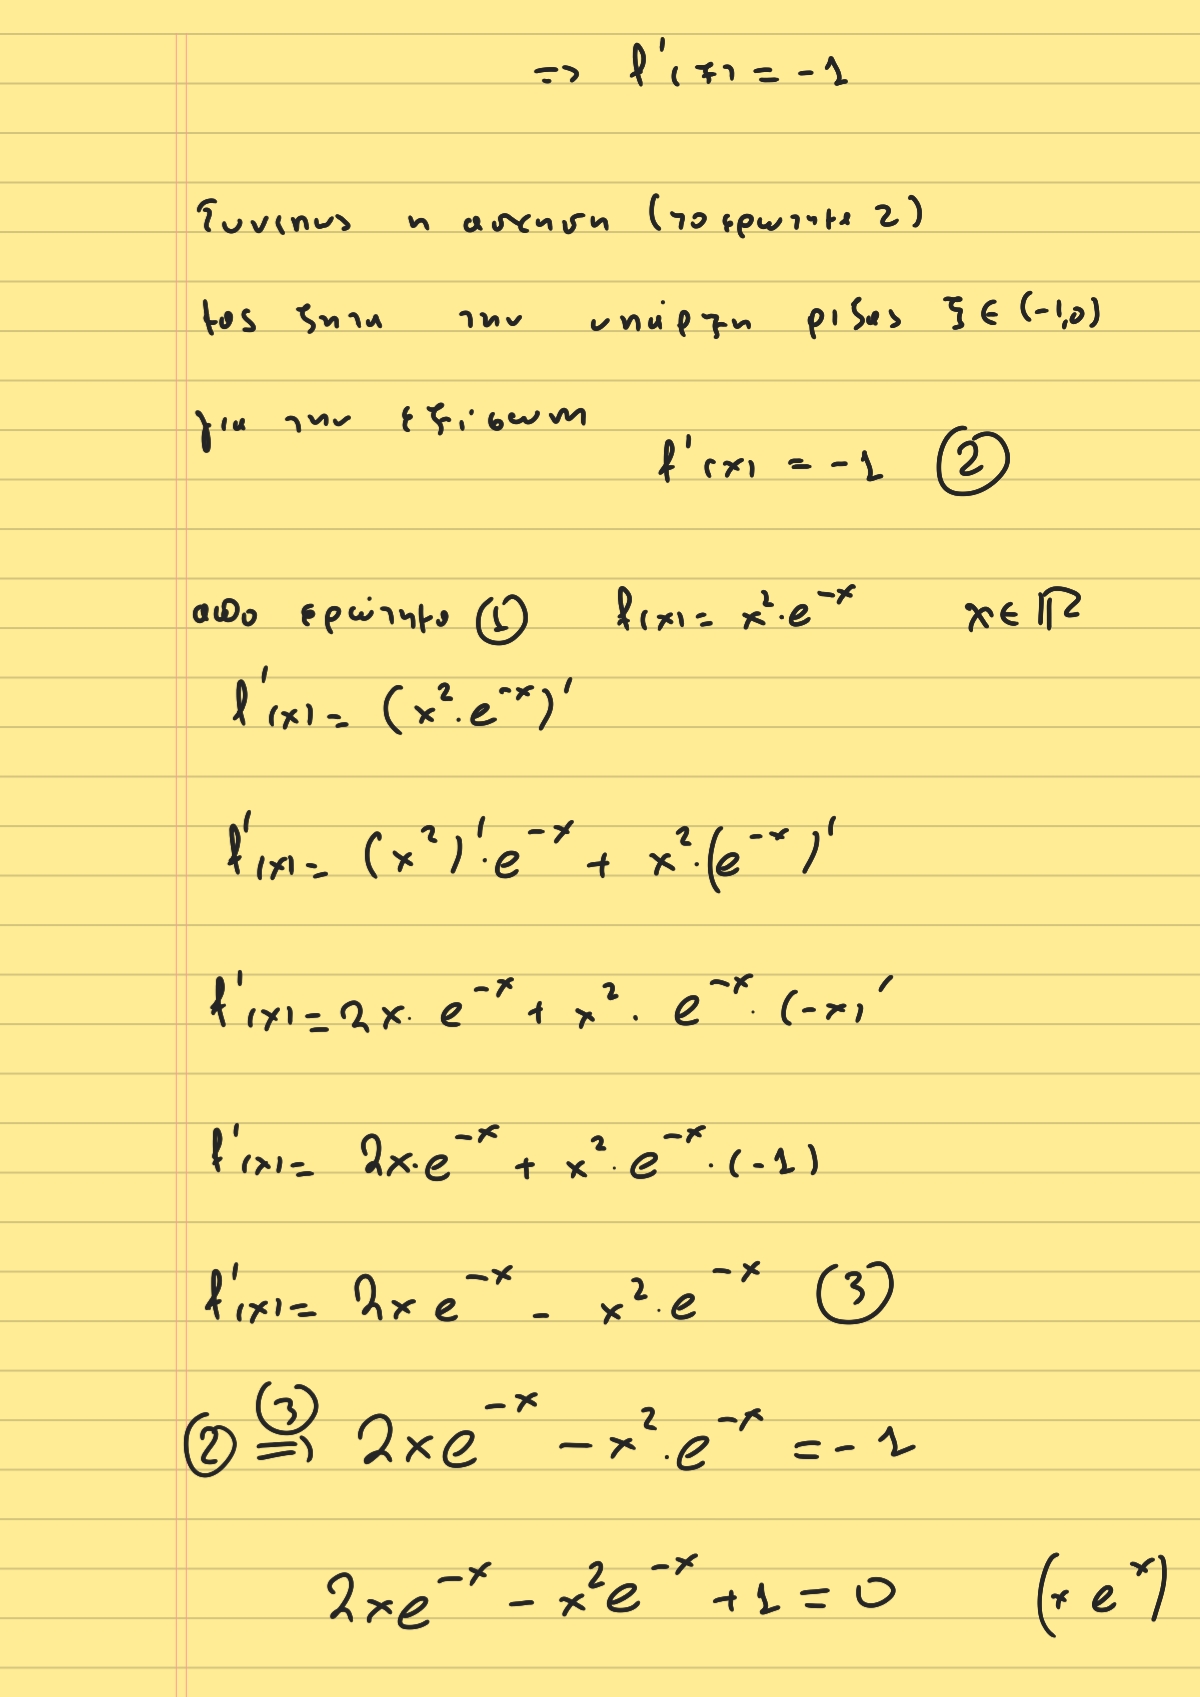 => f'(ξ) = -1
Συνεπως η ασκηση (το ερωτημα 2)
μας ζηταει την υπαρξη ριζας ξ ∈ (-1,0)
για την εξίσωση
f'(x) = -1 ②
απο ερώτημα ① f(x) = x²·e⁻ˣ x ∈ ℝ
f'(x) = (x²·e⁻ˣ)'
f'(x) = (x²)'·e⁻ˣ + x²·(e⁻ˣ)'
f'(x) = 2x·e⁻ˣ + x²·e⁻ˣ·(-x)'
f'(x) = 2x·e⁻ˣ + x²·e⁻ˣ·(-1)
f'(x) = 2x e⁻ˣ - x²·e⁻ˣ ③
② ③ => 2xe⁻ˣ - x²·e⁻ˣ = -1
2xe⁻ˣ - x²e⁻ˣ + 1 = 0 (× eˣ)